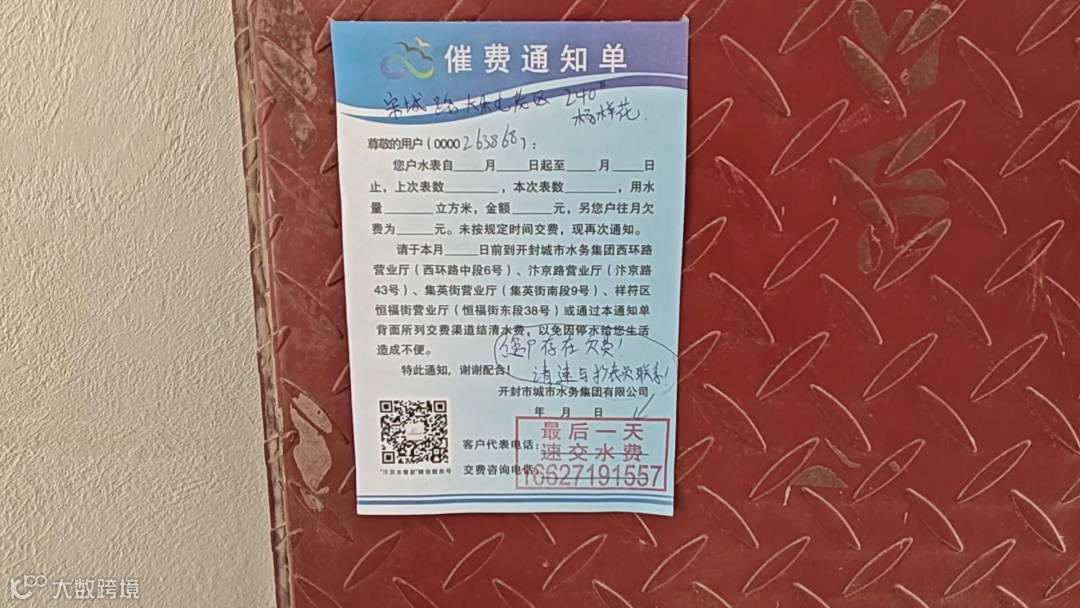 催费通知单
宋城路 240#
杨样花
尊敬的用户(0000263868):
您户水表自____月____日起至____月____日
止,上次表数______,本次表数______,用水
量______立方米,金额_____元,另您户往月欠
费为_____元。未按规定时间交费,现再次通知。
请于本月____日前到开封城市水务集团西环路
营业厅(西环路中段6号)、汴京路营业厅(汴京路
43号)、集英街营业厅(集英街南段9号)、祥符区
恒福街营业厅(恒福街东段38号)或通过本通知单
背面所列交费渠道结清水费,以免因停水给您生活
造成不便。
您户存在欠费!
特此通知,谢谢配合!
请速与抄表员联系!
开封市城市水务集团有限公司
年 月 日
客户代表电话:
交费咨询电话:
最后一天
速交水费
16627191557
"汴京水管家"微信服务号
大数跨境